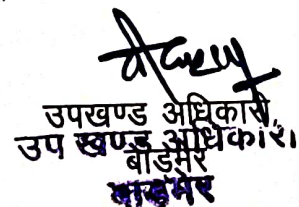 उपखण्ड अधिकारी,
उप खण्ड अधिकारी
बाडमेर
बाड़मेर